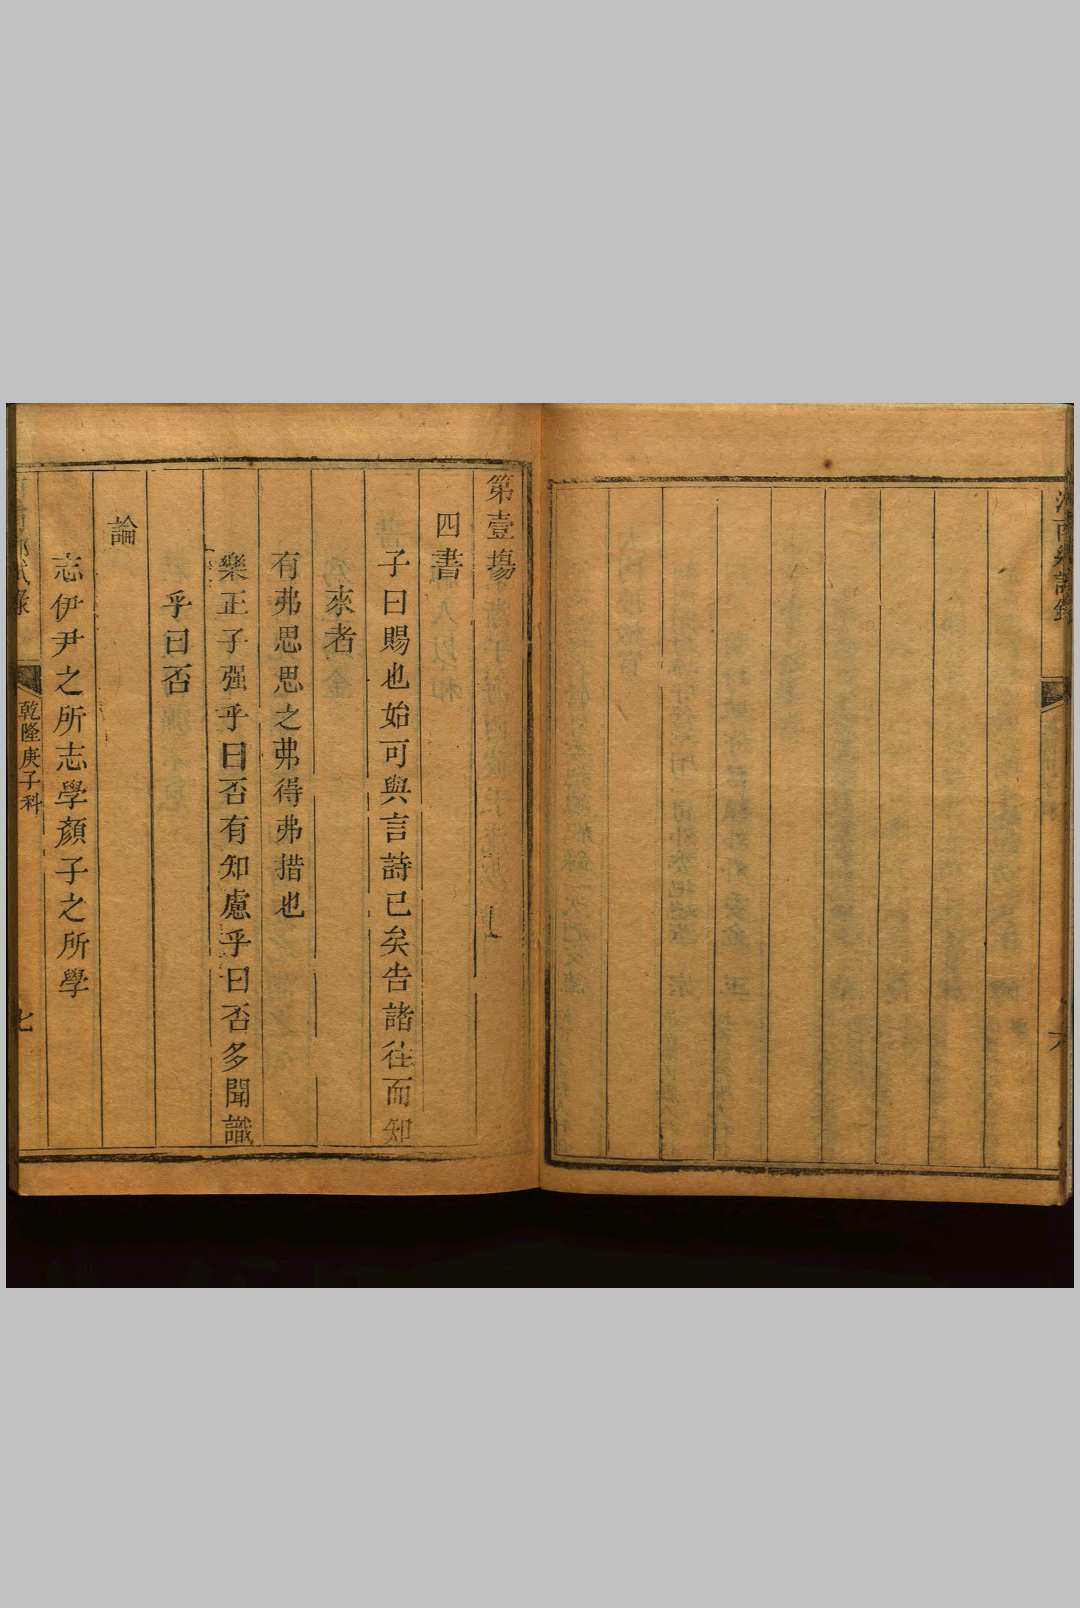 第壹塲
四書
子曰賜也始可與言詩已矣告諸徃而知
來者
有弗思思之弗得弗措也
樂正子强乎曰否有知慮乎曰否多聞識
乎曰否
論
志伊尹之所志學顏子之所學
乾隆庚子科
七